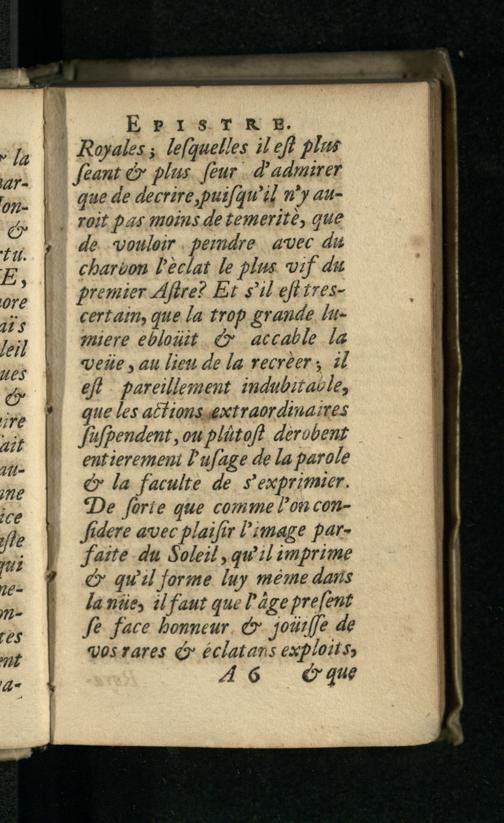 EPISTRE.
Royales; lesquelles il est plus
seant & plus seur d'admirer
que de decrire, puisqu'il n'y au-
roit pas moins de temeritè, que
de vouloir peindre avec du
charbon l'èclat le plus vif du
premier Astre? Et s'il est tres-
certain, que la trop grande lu-
miere eblouït & accable la
veüe, au lieu de la recrèer; il
est pareillement indubitable,
que les actions extraordinaires
suspendent, ou plûtost derobent
entierement l'usage de la parole
& la faculte de s'exprimier.
De sorte que comme l'on con-
sidere avec plaisir l'image par-
faite du Soleil, qu'il imprime
& qu'il forme luy même dans
la nüe, il faut que l'âge present
se face honneur & joüisse de
vos rares & eclatans exploits,
A 6 & que
la
par-
&
rtu.
E,
ore
aïs
leil
ues
&
ire
ait
au-
ne
ice
iste
qui
ne-
on-
tes
ent
va-